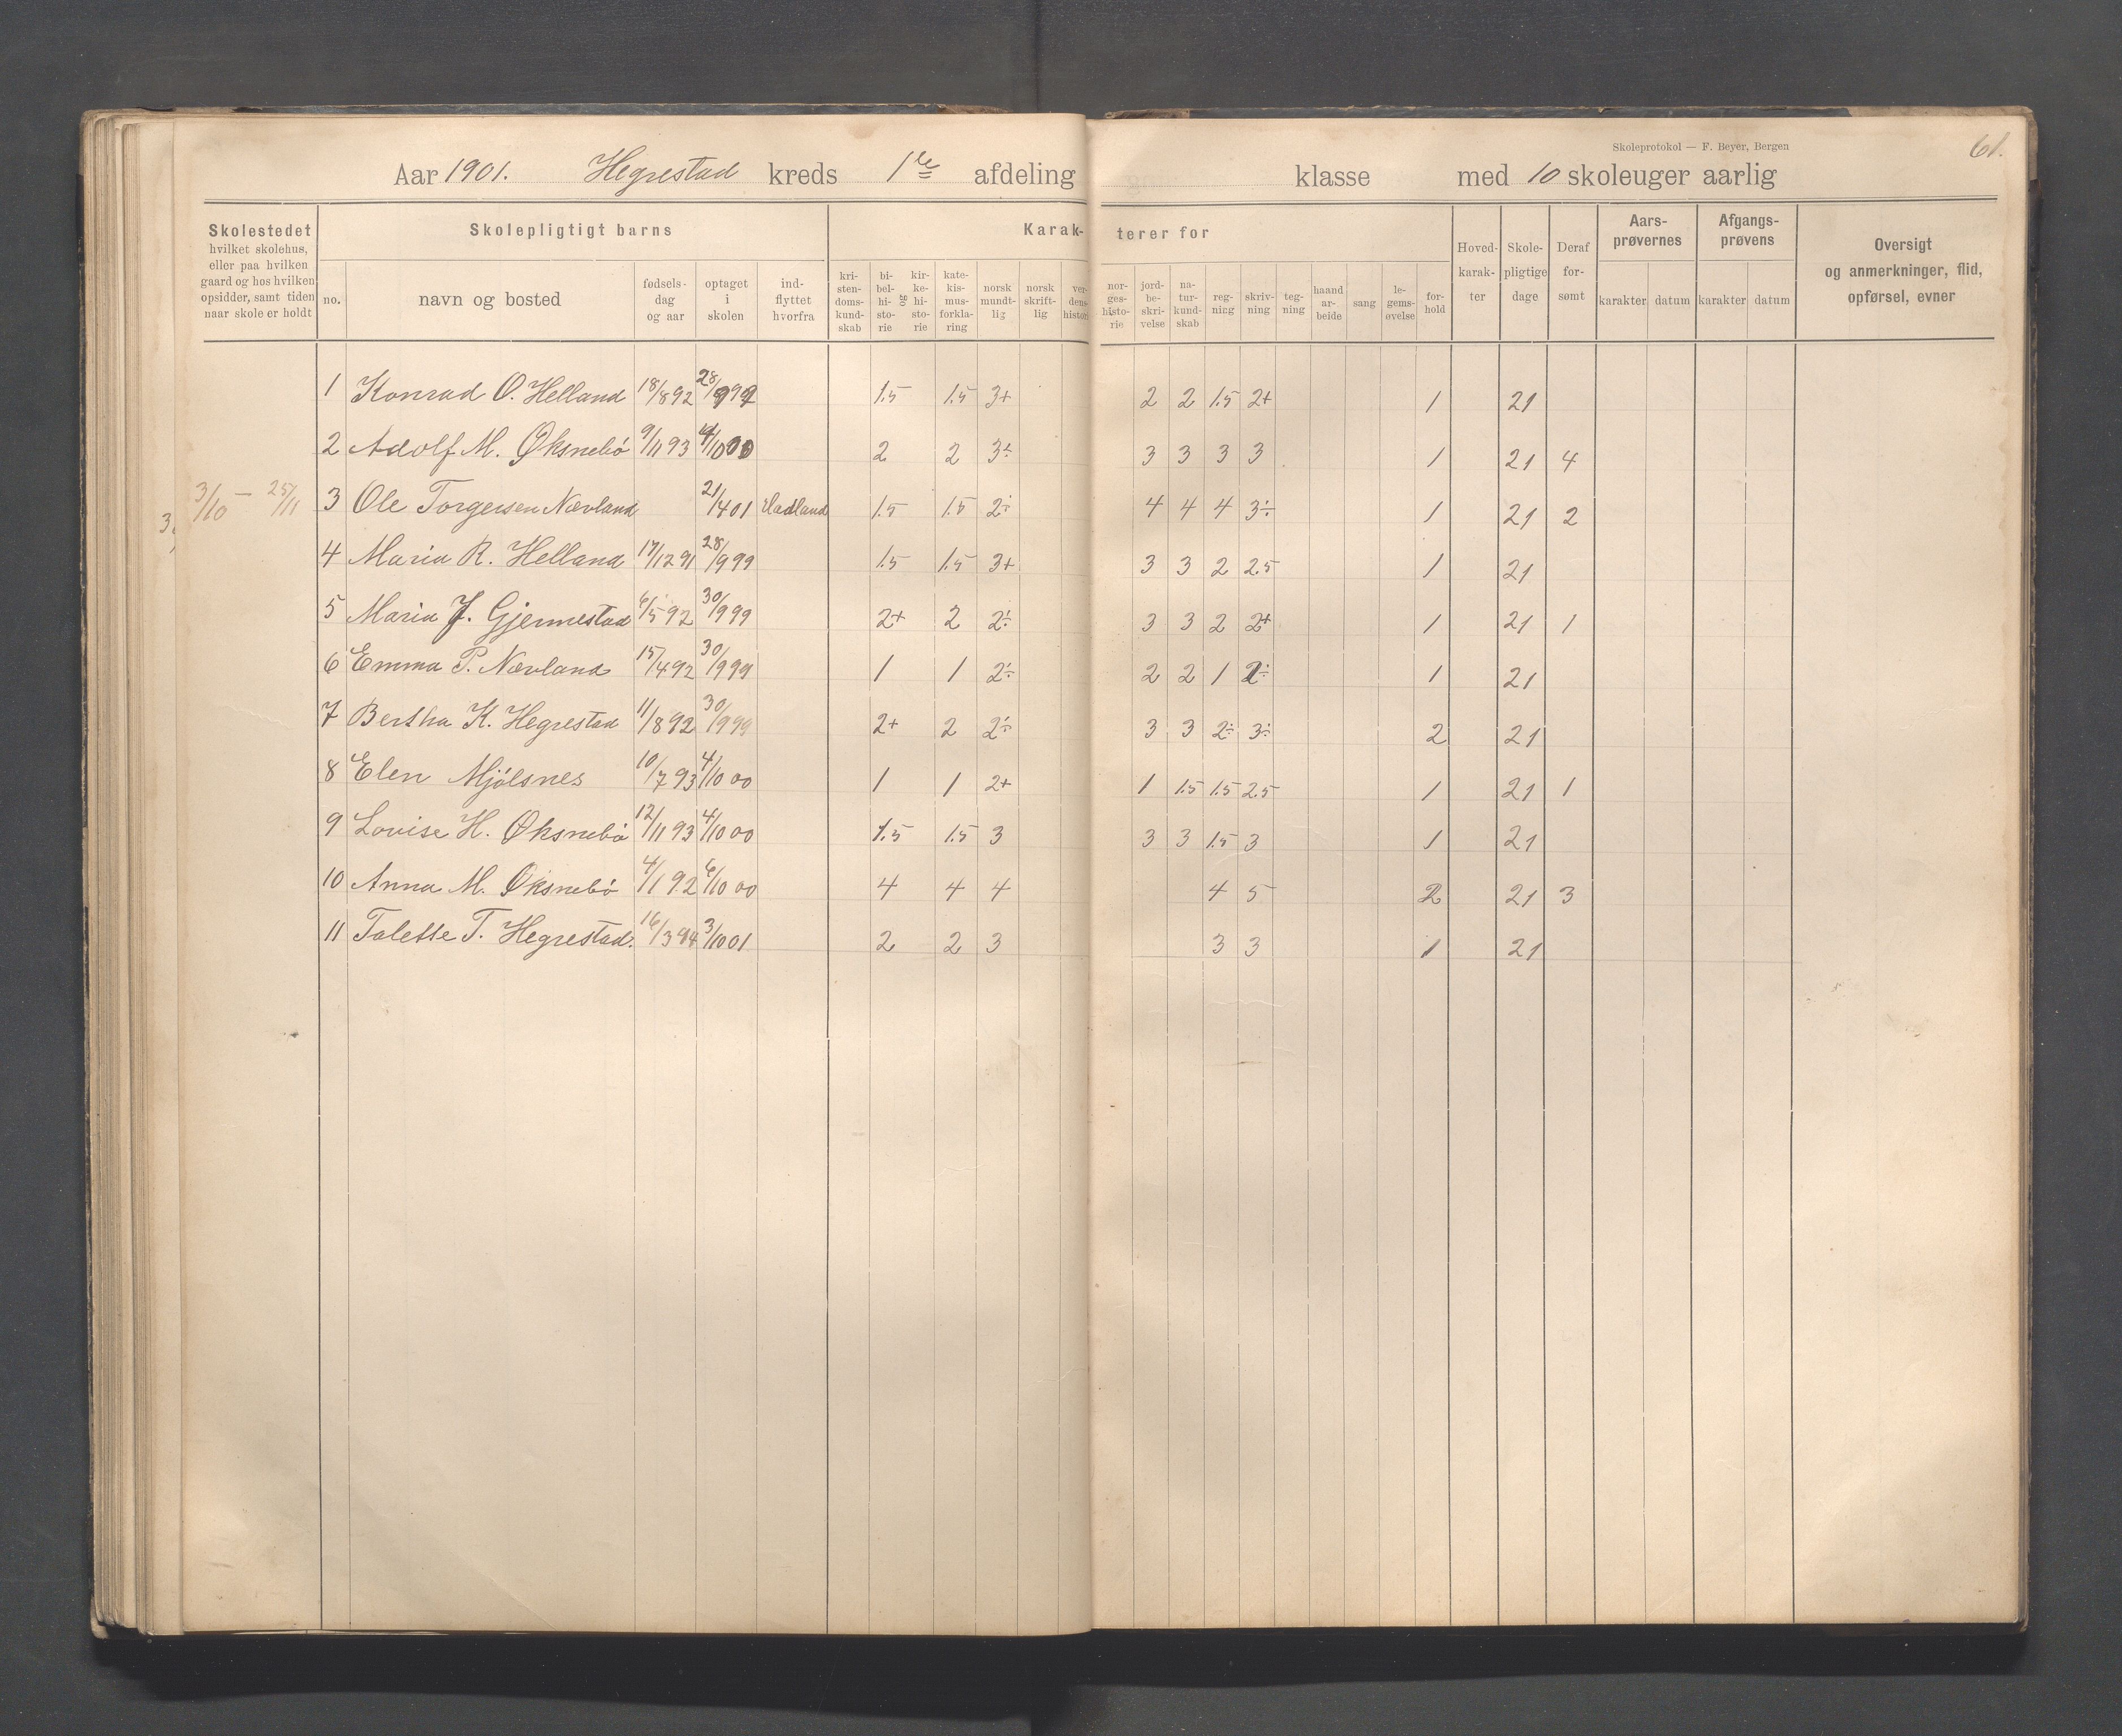 Skoleprotokol — F. Beyer, Bergen
61.
Aar 1901. Hegrestad kreds 1ste afdeling klasse med 10 skoleuger aarlig
Skolestedet hvilket skolehus, eller paa hvilken gaard og hos hvilken opsidder, samt tiden naar skole er holdt
Skolepligtigt barns
no. navn og bosted fødselsdag og aar optaget i skolen indflyttet hvorfra
Karakterer for
kristendomskundskab bibelhistorie og kirkehistorie katekismusforklaring norsk mundtlig norsk skriftlig verdenshistorie norgeshistorie jordbeskrivelse naturkundskab regning skrivning tegning haandarbeide sang legemsøvelse forhold
Hovedkarakter Skolepligtige dage Deraf forsømt
Aarsprøvernes karakter datum
Afgangsprøvens karakter datum
Oversigt og anmerkninger, flid, opførsel, evner
1 Konrad O. Helland 18/8 92 28/9 99 1.5 1.5 3+ 2 2 1.5 2+ 1 21
2 Adolf M. Øksnebø 9/11 93 4/10 00 2 2 3÷ 3 3 3 3 1 21 4
3/10 — 25/11 3 Ole Torgersen Nævland 21/4 01 Hadland 1.5 1.5 2÷ 4 4 4 3÷ 1 21 2
4 Maria R. Helland 17/12 91 28/9 99 1.5 1.5 3+ 3 3 2 2.5 1 21
5 Maria J. Gjermestad 6/5 92 30/9 99 2+ 2 2÷ 3 3 2 2+ 1 21 1
6 Emma P. Nævland 15/4 92 30/9 99 1 1 2÷ 2 2 1 2÷ 1 21
7 Bertha K. Hegrestad 11/8 92 30/9 99 2+ 2 2÷ 3 3 2÷ 3÷ 2 21
8 Elen Mjølsnes 10/7 93 4/10 00 1 1 2+ 1 1.5 1.5 2.5 1 21 1
9 Lovise H. Øksnebø 12/11 93 4/10 00 1.5 1.5 3 3 3 1.5 3 1 21
10 Anna M. Øksnebø 4/1 92 6/10 00 4 4 4 4 5 2 21 3
11 Talette T. Hegrestad. 16/3 94 3/10 01 2 2 3 3 3 1 21